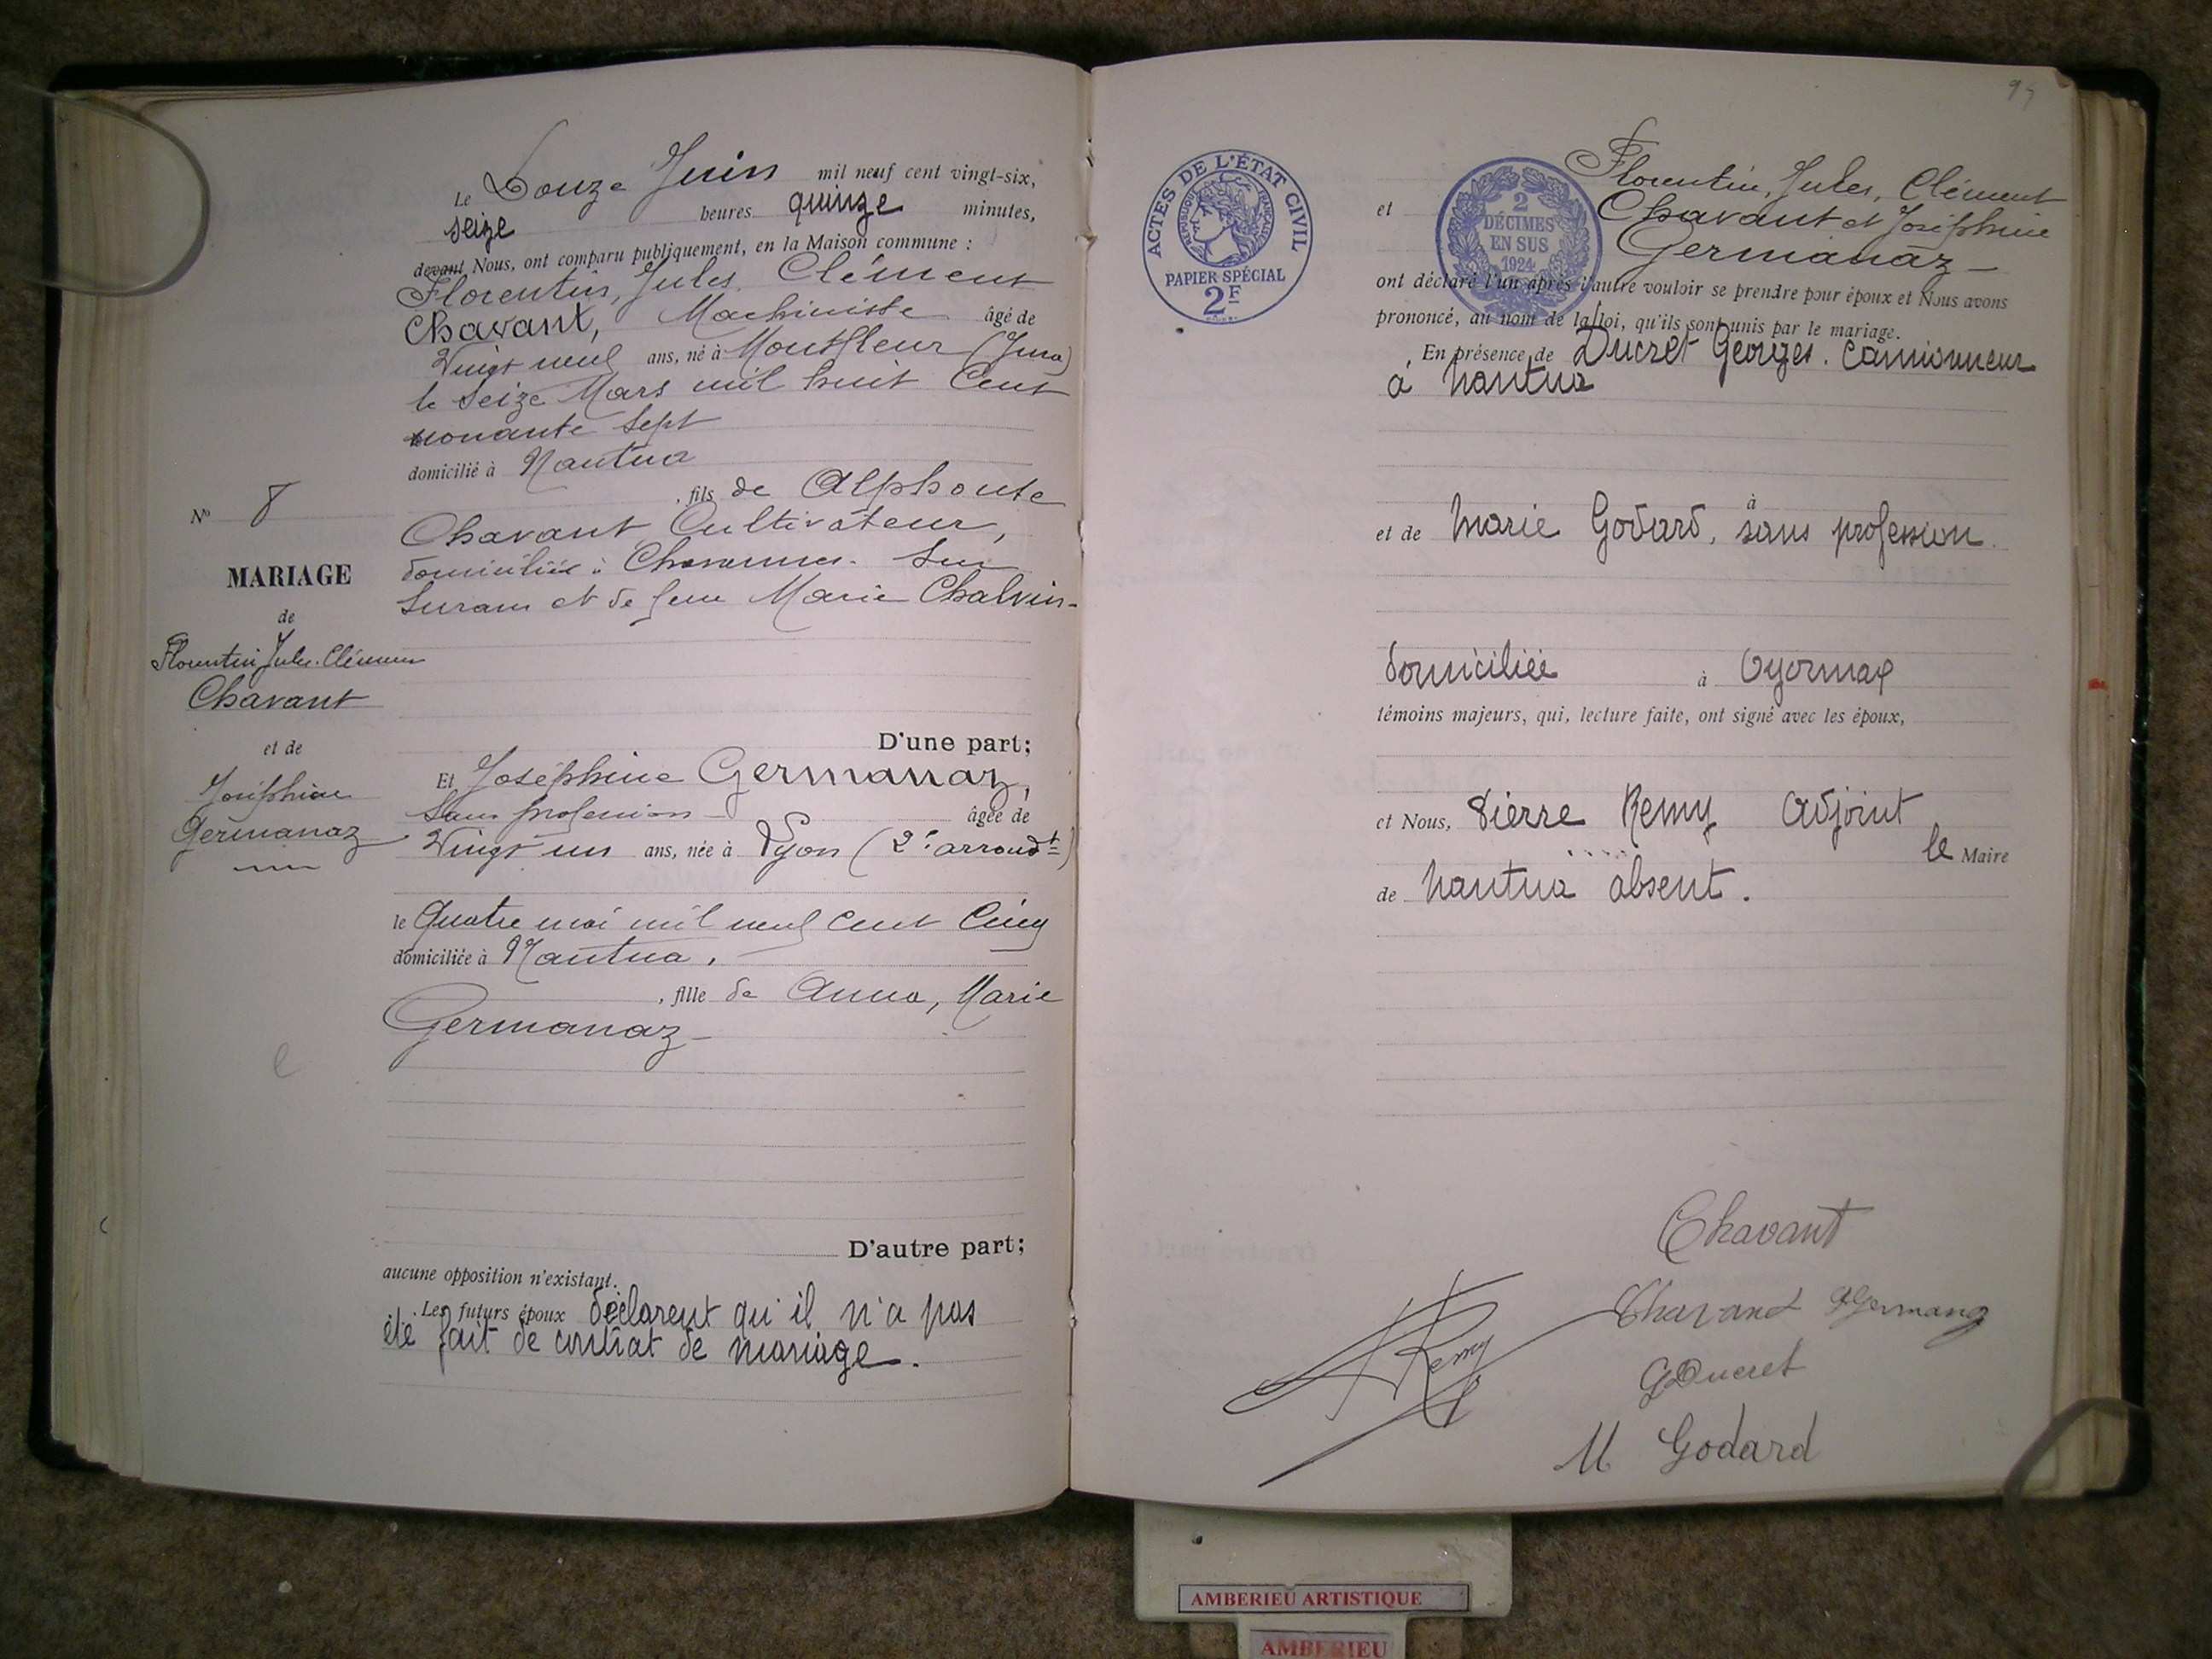 Le Douze Juin mil neuf cent vingt-six,
seize heures quinze minutes,
devant Nous, ont comparu publiquement, en la Maison commune :
Florentin, Jules, Clément
Chavant, Machiniste âgé de
Vingt neuf ans, né à Montfleur (Jura)
le seize Mars mil huit Cent
nonante sept
domicilié à Nantua
, fils de Alphonse
Chavant Cultivateur,
domicilié à Chavannes-Sur
Suran et de feue Marie Chalvin-
D'une part;
Et Joséphine Germanaz,
Sans profession âgée de
Vingt un ans, née à Lyon (2e arrondt)
le Quatre mai mil neuf cent Cinq
domiciliée à Nantua,
, fille de Anna, Marie
Germanaz-
D'autre part;
aucune opposition n'existant.
Les futurs époux déclarent qu'il n'a pas
été fait de contrat de mariage.
N° 8
MARIAGE
de
Florentin Jules Clément
Chavant
et de
Joséphine
Germanaz
ACTES DE L'ÉTAT CIVIL
RÉPUBLIQUE FRANÇAISE
PAPIER SPÉCIAL
2F
2
DÉCIMES
EN SUS
1924
Florentin, Jules, Clément
et Chavant et Joséphine
Germanaz-
ont déclaré l'un après l'autre vouloir se prendre pour époux et Nous avons
prononcé, au nom de la loi, qu'ils sont unis par le mariage.
En présence de Ducret Georges. Camionneur
à Nantua
à
et de Marie Godard, sans profession.
domiciliée à Oyonnax
témoins majeurs, qui, lecture faite, ont signé avec les époux,
et Nous, Pierre Remy Adjoint
le Maire
de Nantua absent.
Chavant
Chavant Germanaz
GDucret
Remy
M Godard
AMBERIEU ARTISTIQUE
AMBERIEU